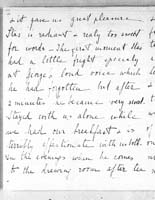 & it gave us great pleasure
This is radiant & really too sweet
for words – The first moment they
had a little fright specially
at George's loud voice which
he had forgotten but after
2 minutes he became very sweet.
Stayed with us alone while
we had our breakfast & is
terribly affectionate with us both.
In the evenings when he comes
to the drawing room after tea